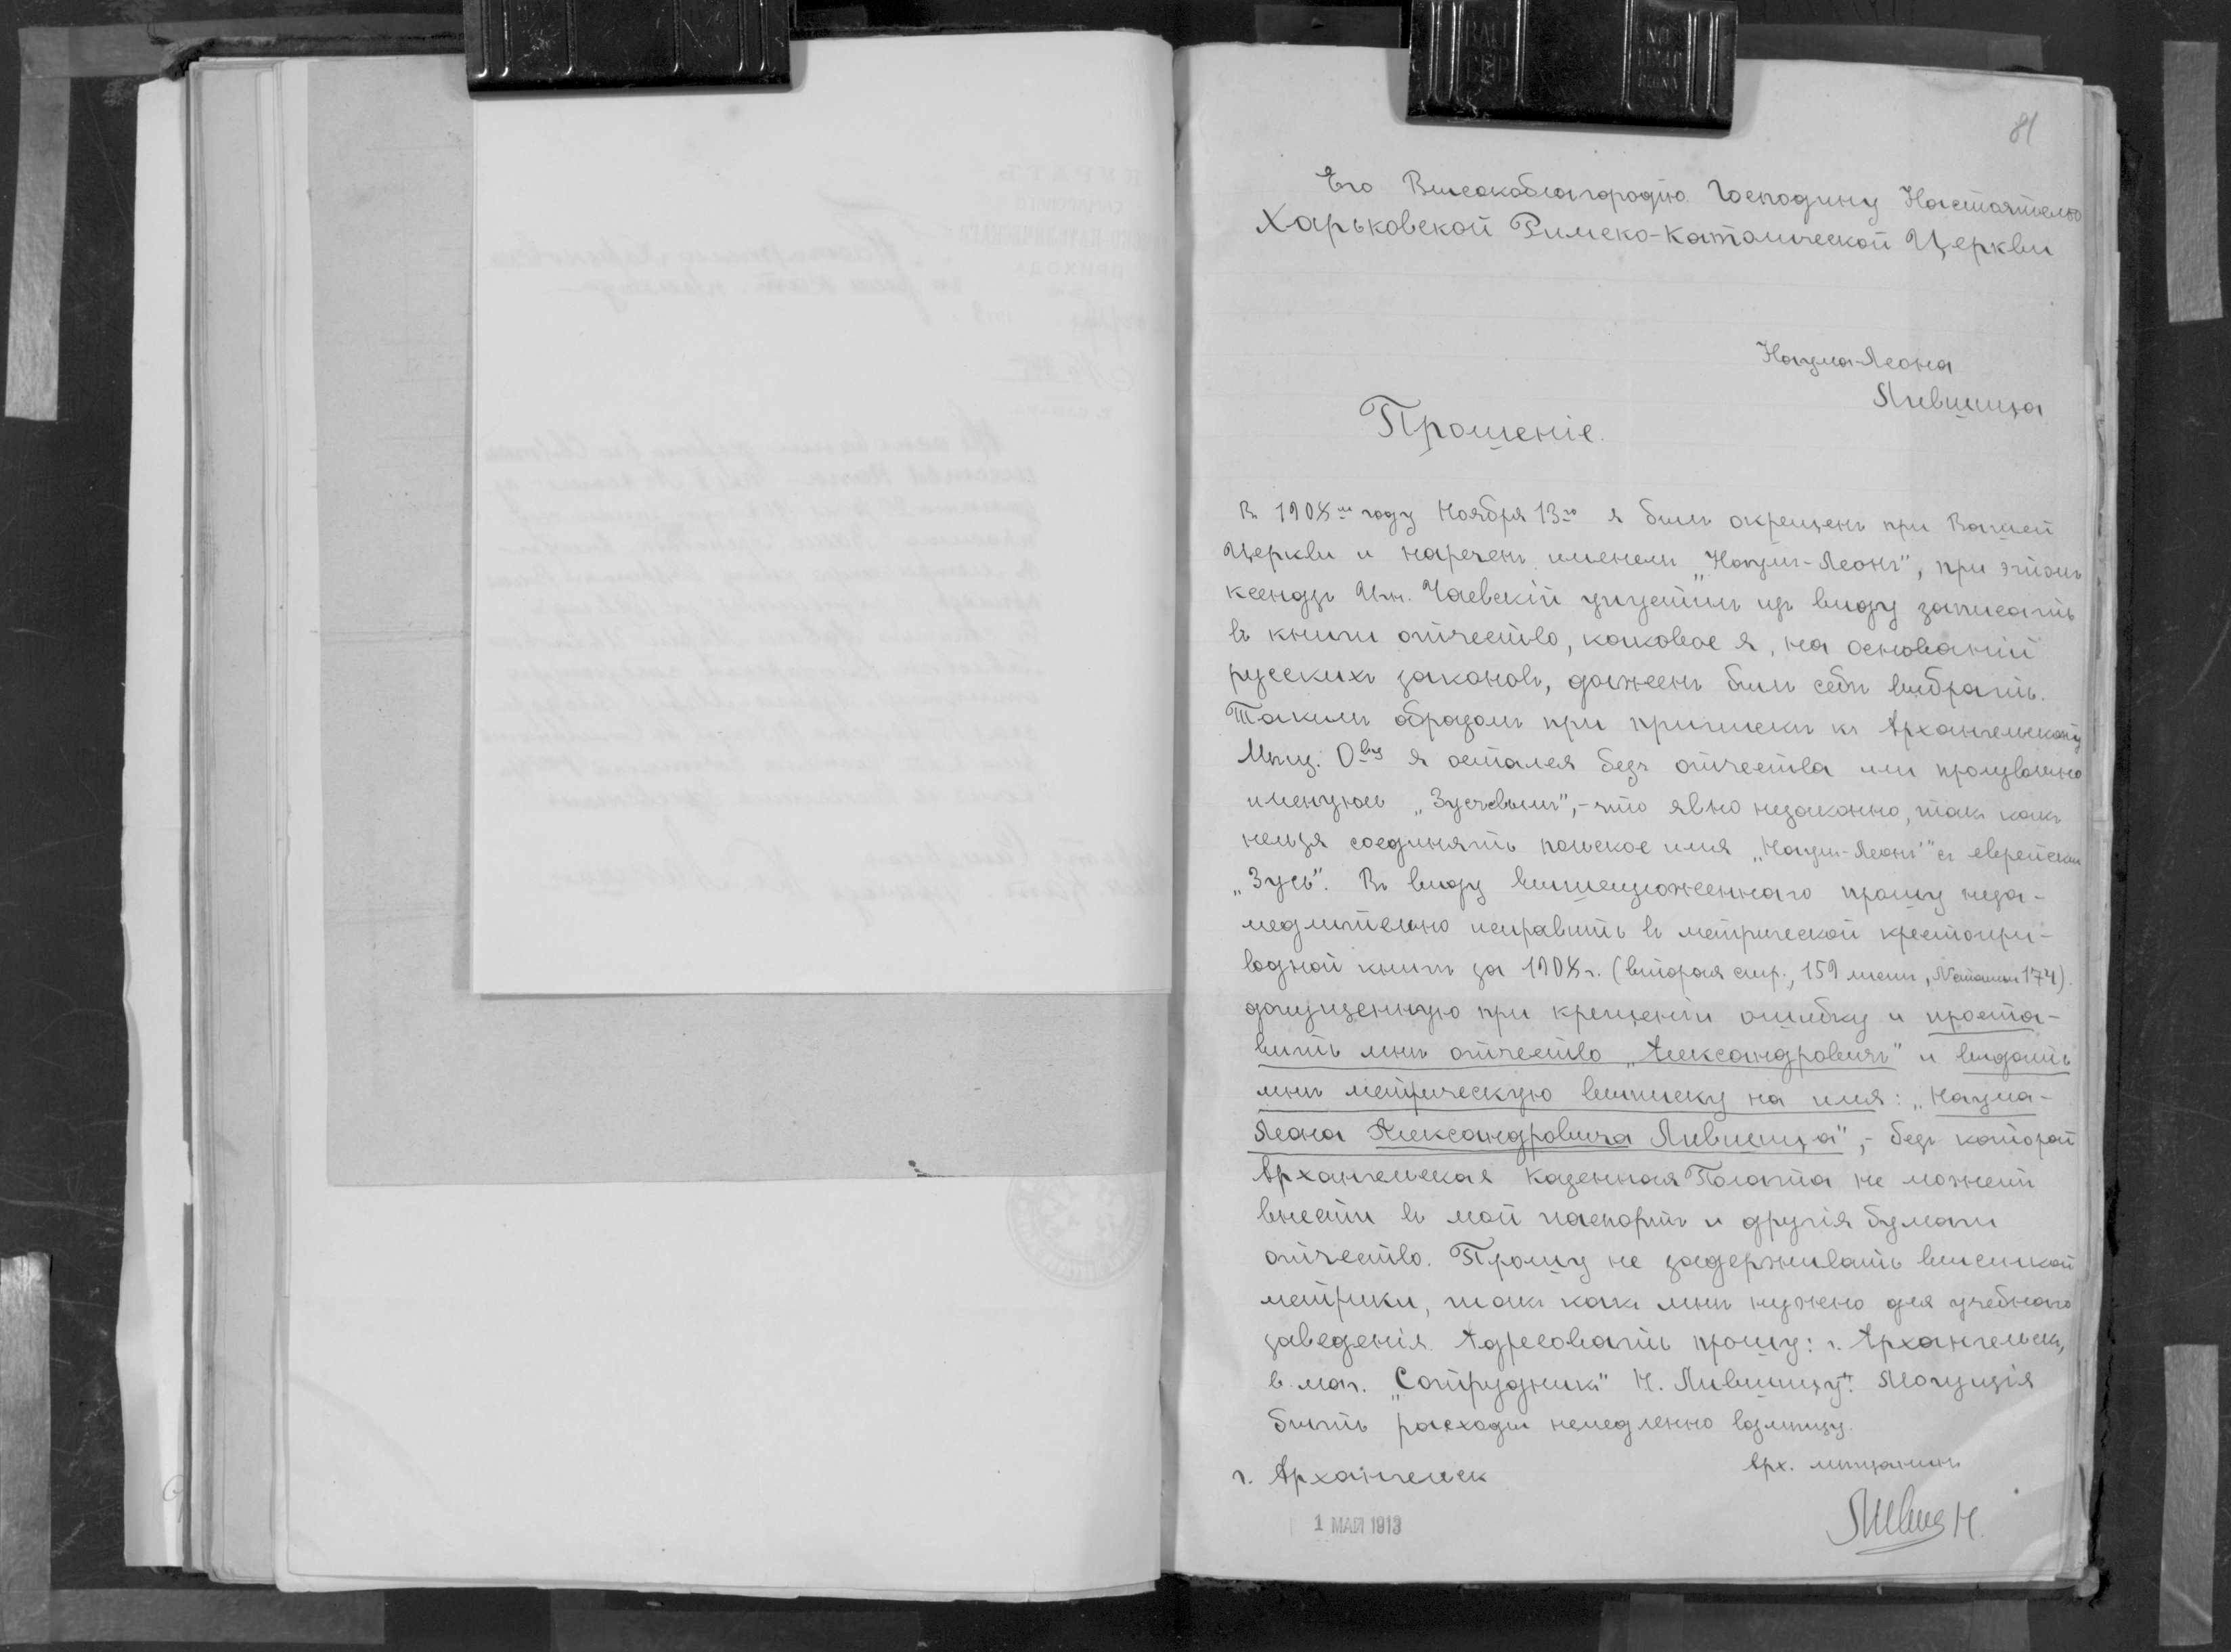 81
Его Высокоблагородію Господину Настоятелю
Харьковской Римско-Католической Церкви
Наума-Леона
Лившица
Прошеніе.
В 1908 году Ноября 13го я былъ окрещенъ при Вашей
Церкви и нареченъ именемъ „Наумъ-Леонъ", при этомъ
ксендзъ Чаевскій упустилъ изъ виду записать
въ книги отчество, каковое я, на основаніи
русскихъ законовъ, долженъ былъ себѣ выбрать.
Такимъ образомъ при припискѣ къ Архангельскому
Мѣщ. Ову я остался безъ отчества или произвольно
именуюсь „Зусевымъ",-что явно незаконно, такъ какъ
нельзя соединять польское имя „Наумъ-Леонъ" съ еврейским
„Зусь". Въ виду вышеизложеннаго прошу неза-
медлительно исправить въ метрической крестопри-
водной книгѣ за 1908 г. (вторая стр., 159 листъ, 174).
допущенную при крещеніи ошибку и проста-
вить мнѣ отчество „Александровичъ" и выдать
мнѣ метрическую выписку на имя: „Наума-
Леона Александровича Лившица",- безъ которой
Архангельская Казенная Палата не можетъ
внести въ мой паспортъ и другія бумаги
отчество. Прошу не задерживать высылкой
метрики, такъ какъ мнѣ нужно для учебнаго
заведенія. Адресовать прошу: г. Архангельск,
в маг. „Сотрудникъ" Н. Лившицу. Могущія
быть расходы немедленно возмѣщу.
г. Архангельск
Арх. мѣщанинъ
1 МАЯ 1913
Лившиц Н.